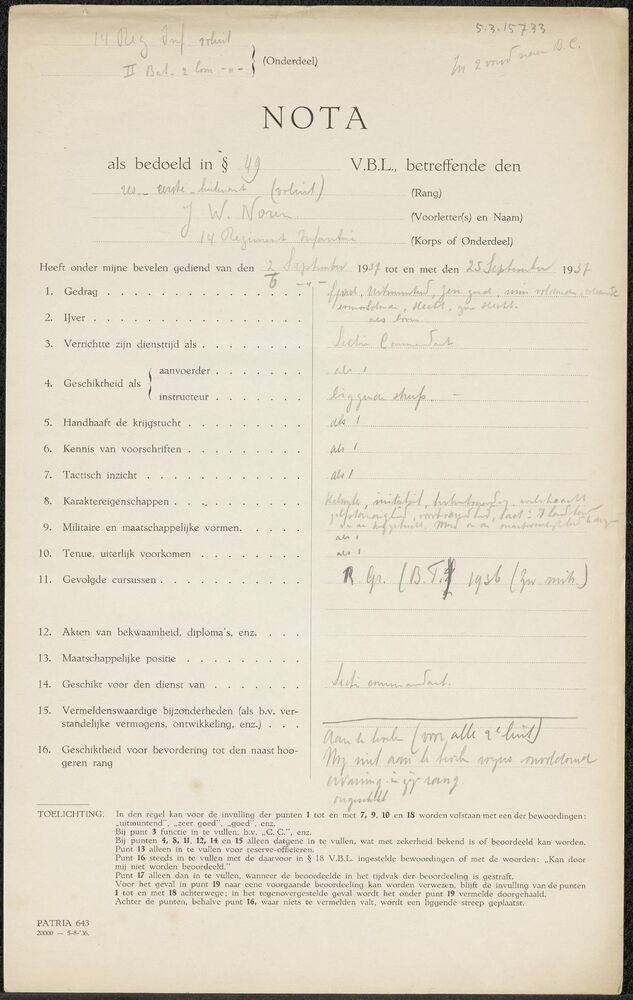 5.3.15733
14 Reg Inf
II Bat. 2 Com -"-
(Onderdeel)
In 2 voud
NOTA
als bedoeld in § 49 V.B.L., betreffende den
res. eerste luitenant (Rang)
J W. (Voorletter(s) en Naam)
14 Regiment Infanterie (Korps of Onderdeel)
Heeft onder mijne bevelen gediend van den 2 September 1937 tot en met den 25 September 1937
6 -"-
1. Gedrag
goed, slecht, zeer slecht.
2. IJver als boven
3. Verrichtte zijn diensttijd als Sectie Commandant
4. Geschiktheid als
aanvoerder als 1
instructeur liggende streep.
5. Handhaaft de krijgstucht als 1
6. Kennis van voorschriften als 1
7. Tactisch inzicht als 1
8. Karaktereigenschappen initiatief,
tact
9. Militaire en maatschappelijke vormen. als 1
10. Tenue, uiterlijk voorkomen als 1
11. Gevolgde cursussen R. Gr. (B.T. 1936
12. Akten van bekwaamheid, diploma's, enz.
13. Maatschappelijke positie
14. Geschikt voor den dienst van Sectie commandant.
15. Vermeldenswaardige bijzonderheden (als b.v. ver-
standelijke vermogens, ontwikkeling, enz.)
16. Geschiktheid voor bevordering tot den naast hoo-
geren rang
(voor alle 2e luit)
Nog niet aan te
ervaring in zijn rang
ongeschikt
TOELICHTING. In den regel kan voor de invulling der punten 1 tot en met 7, 9, 10 en 18 worden volstaan met een der bewoordingen:
„uitmuntend”, „zeer goed”, „goed”, enz.
Bij punt 3 functie in te vullen, b.v. „C. C.”, enz.
Bij punten 4, 8, 11, 12, 14 en 15 alleen datgene in te vullen, wat met zekerheid bekend is of beoordeeld kan worden.
Punt 13 alleen in te vullen voor reserve-officieren.
Punt 16 steeds in te vullen met de daarvoor in § 18 V.B.L. ingestelde bewoordingen of met de woorden: „Kan door
mij niet worden beoordeeld.”
Punt 17 alleen dan in te vullen, wanneer de beoordeelde in het tijdvak der beoordeeling is gestraft.
Voor het geval in punt 19 naar eene voorgaande beoordeeling kan worden verwezen, blijft de invulling van de punten
1 tot en met 18 achterwege; in het tegenovergestelde geval wordt het onder punt 19 vermelde doorgehaald.
Achter de punten, behalve punt 16, waar niets te vermelden valt, wordt een liggende streep geplaatst.
PATRIA 643
20000 — 5-8-'36.